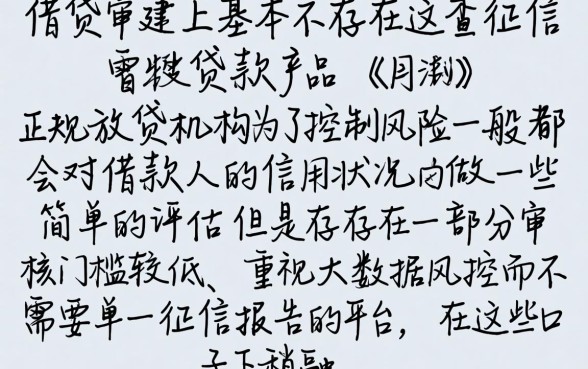 借贷审建上基本不存在这查征信
贷款产品《月澍》
正规放贷机构为了控制风险一般都
会对借款人的信用状况内做一些
简单的评估但是存存在一部分审
核门槛较低、重视大数据风控而不
需要单一征信报告的平台，在这些口
子下稍融